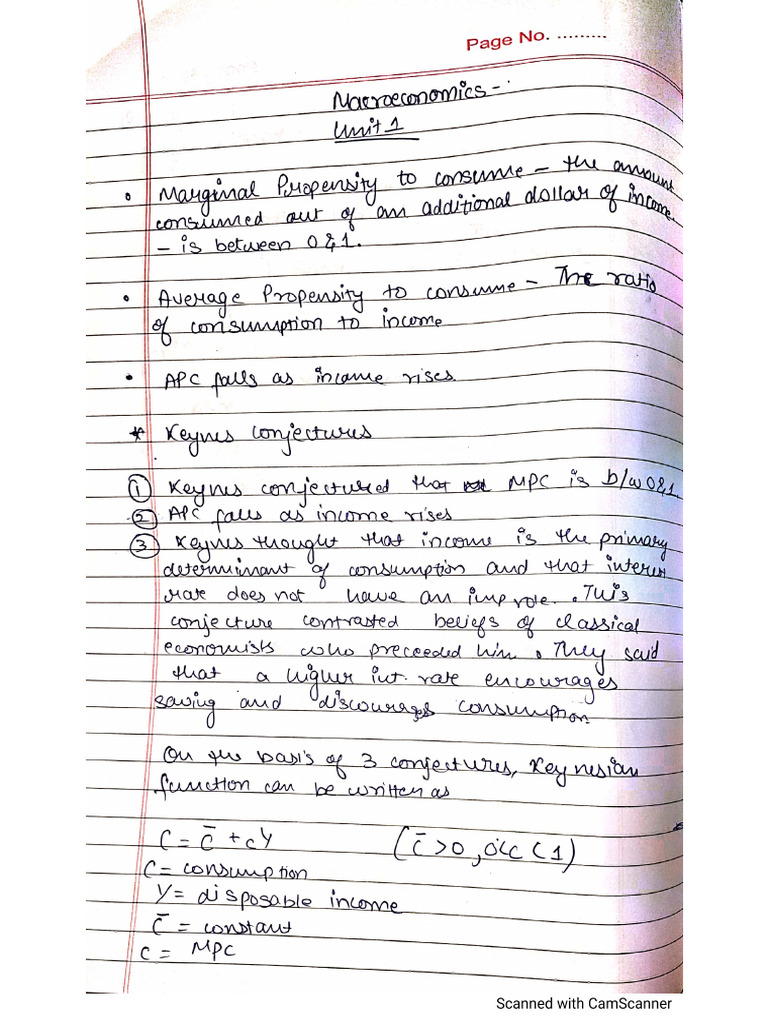 Page No. .........
Macroeconomics -
Unit 1
• Marginal Propensity to consume - the amount
consumed out of an additional dollar of income
- is between 0 & 1.
• Average Propensity to consume - The ratio
of consumption to income
• APC falls as income rises.
* Keynes conjectures
① Keynes conjectured that MPC is b/w 0 & 1.
② APC falls as income rises
③ Keynes thought that income is the primary
determinant of consumption and that interest
rate does not have an imp role. This
conjecture contrasted beliefs of classical
economists who preceeded him. They said
that a higher int. rate encourages
saving and discourages consumption
On the basis of 3 conjectures, Keynesian
function can be written as
C = C̄ + cY (C̄ > 0, 0 < c < 1)
C = consumption
Y = disposable income
C̄ = constant
c = MPC
Scanned with CamScanner